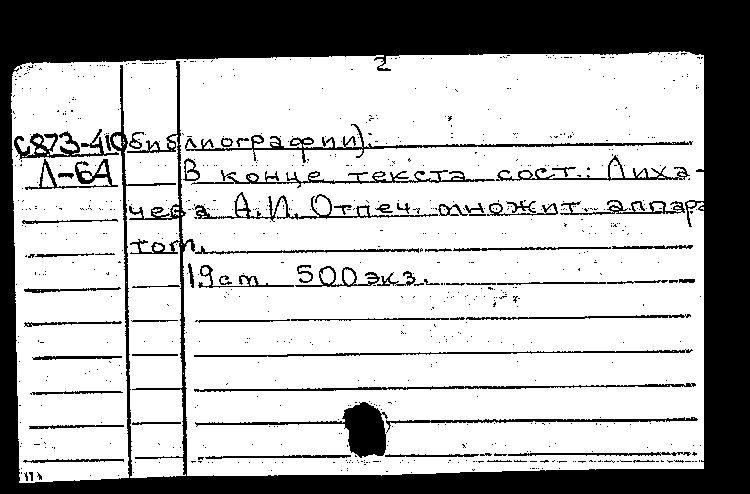 2
С873-410 библиографии).
Л-64 В конце текста сост.: Лиха-
чева А.И. Отпеч. множит. аппара
том.
19 ст. 500 экз.